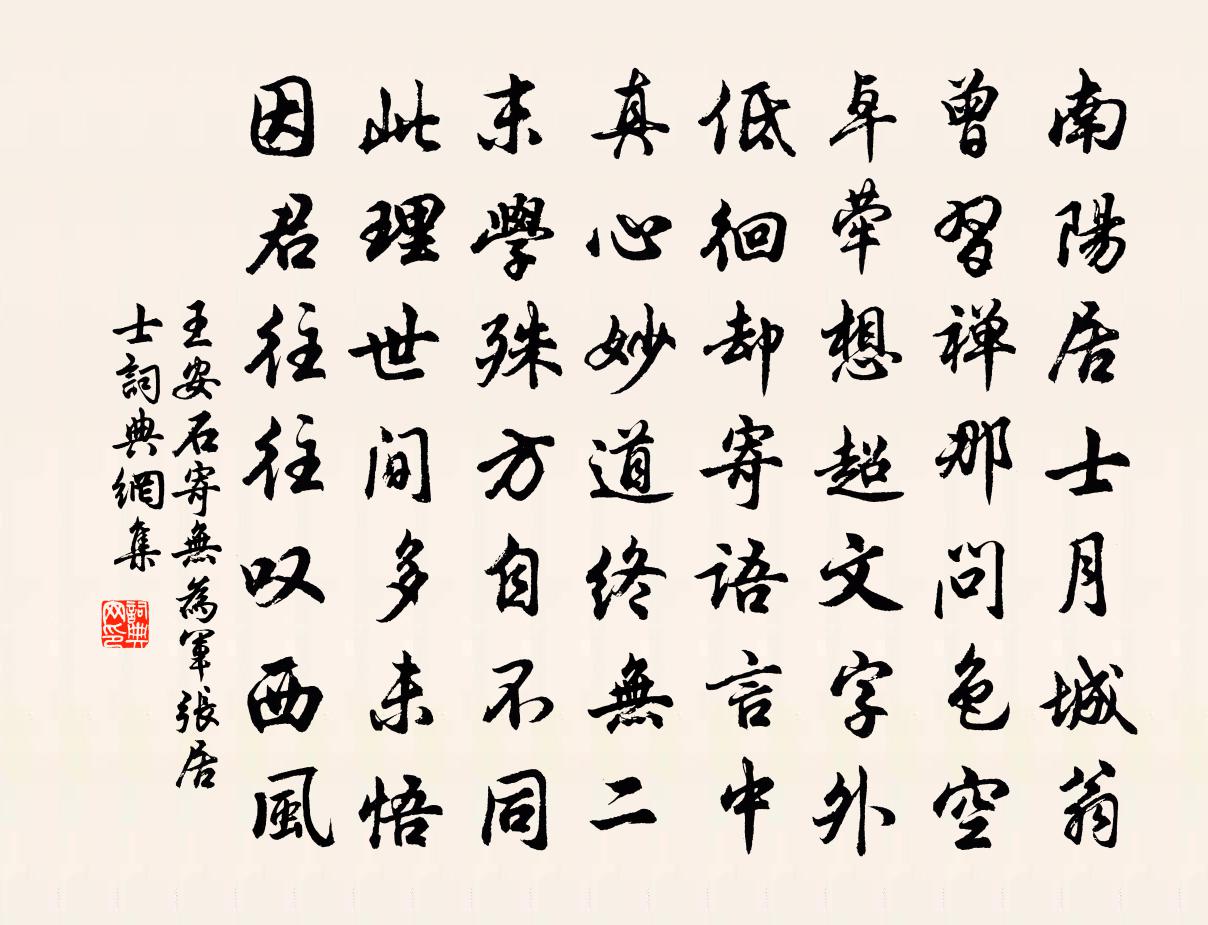 南陽居士月城翁
曾習禅那問色空
卓犖想超文字外
低徊却寄語言中
真心妙道終無二
末學殊方自不同
此理世間多未悟
因君往往叹西風
王安石寄無為軍張居
士詞典網集
詞典
网印